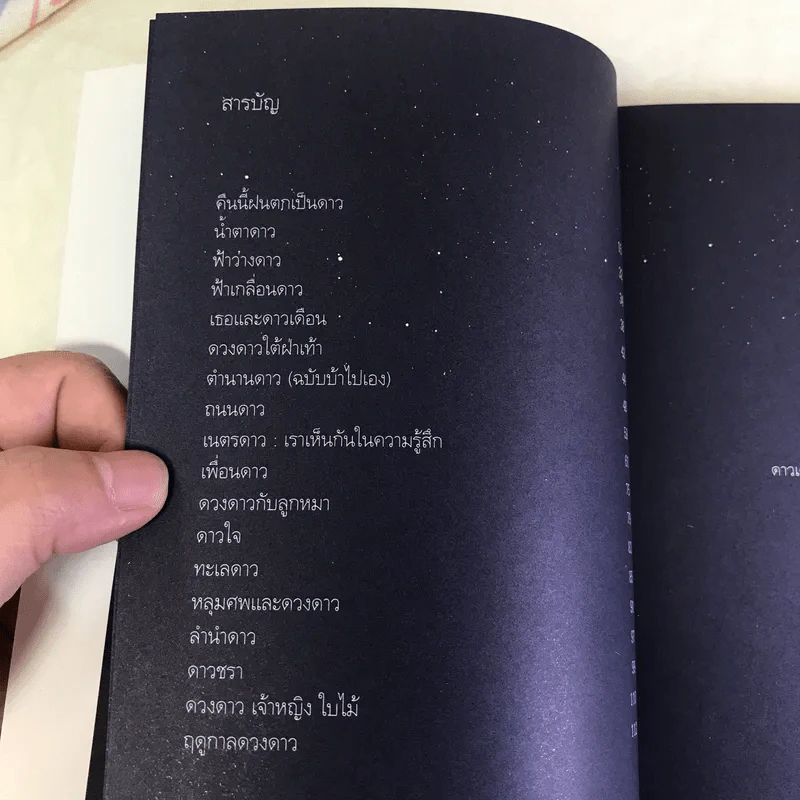 สารบัญ
คืนนี้ฝนตกเป็นดาว
น้ำตาดาว
ฟ้าว่างดาว
ฟ้าเกลื่อนดาว
เธอและดาวเดือน
ดวงดาวใต้ฝ่าเท้า
ตำนานดาว (ฉบับบ้าไปเอง)
ถนนดาว
เนตรดาว : เราเห็นกันในความรู้สึก
เพื่อนดาว
ดวงดาวกับลูกหมา
ดาวใจ
ทะเลดาว
หลุมศพและดวงดาว
ลำนำดาว
ดาวชรา
ดวงดาว เจ้าหญิง ใบไม้
ฤดูกาลดวงดาว